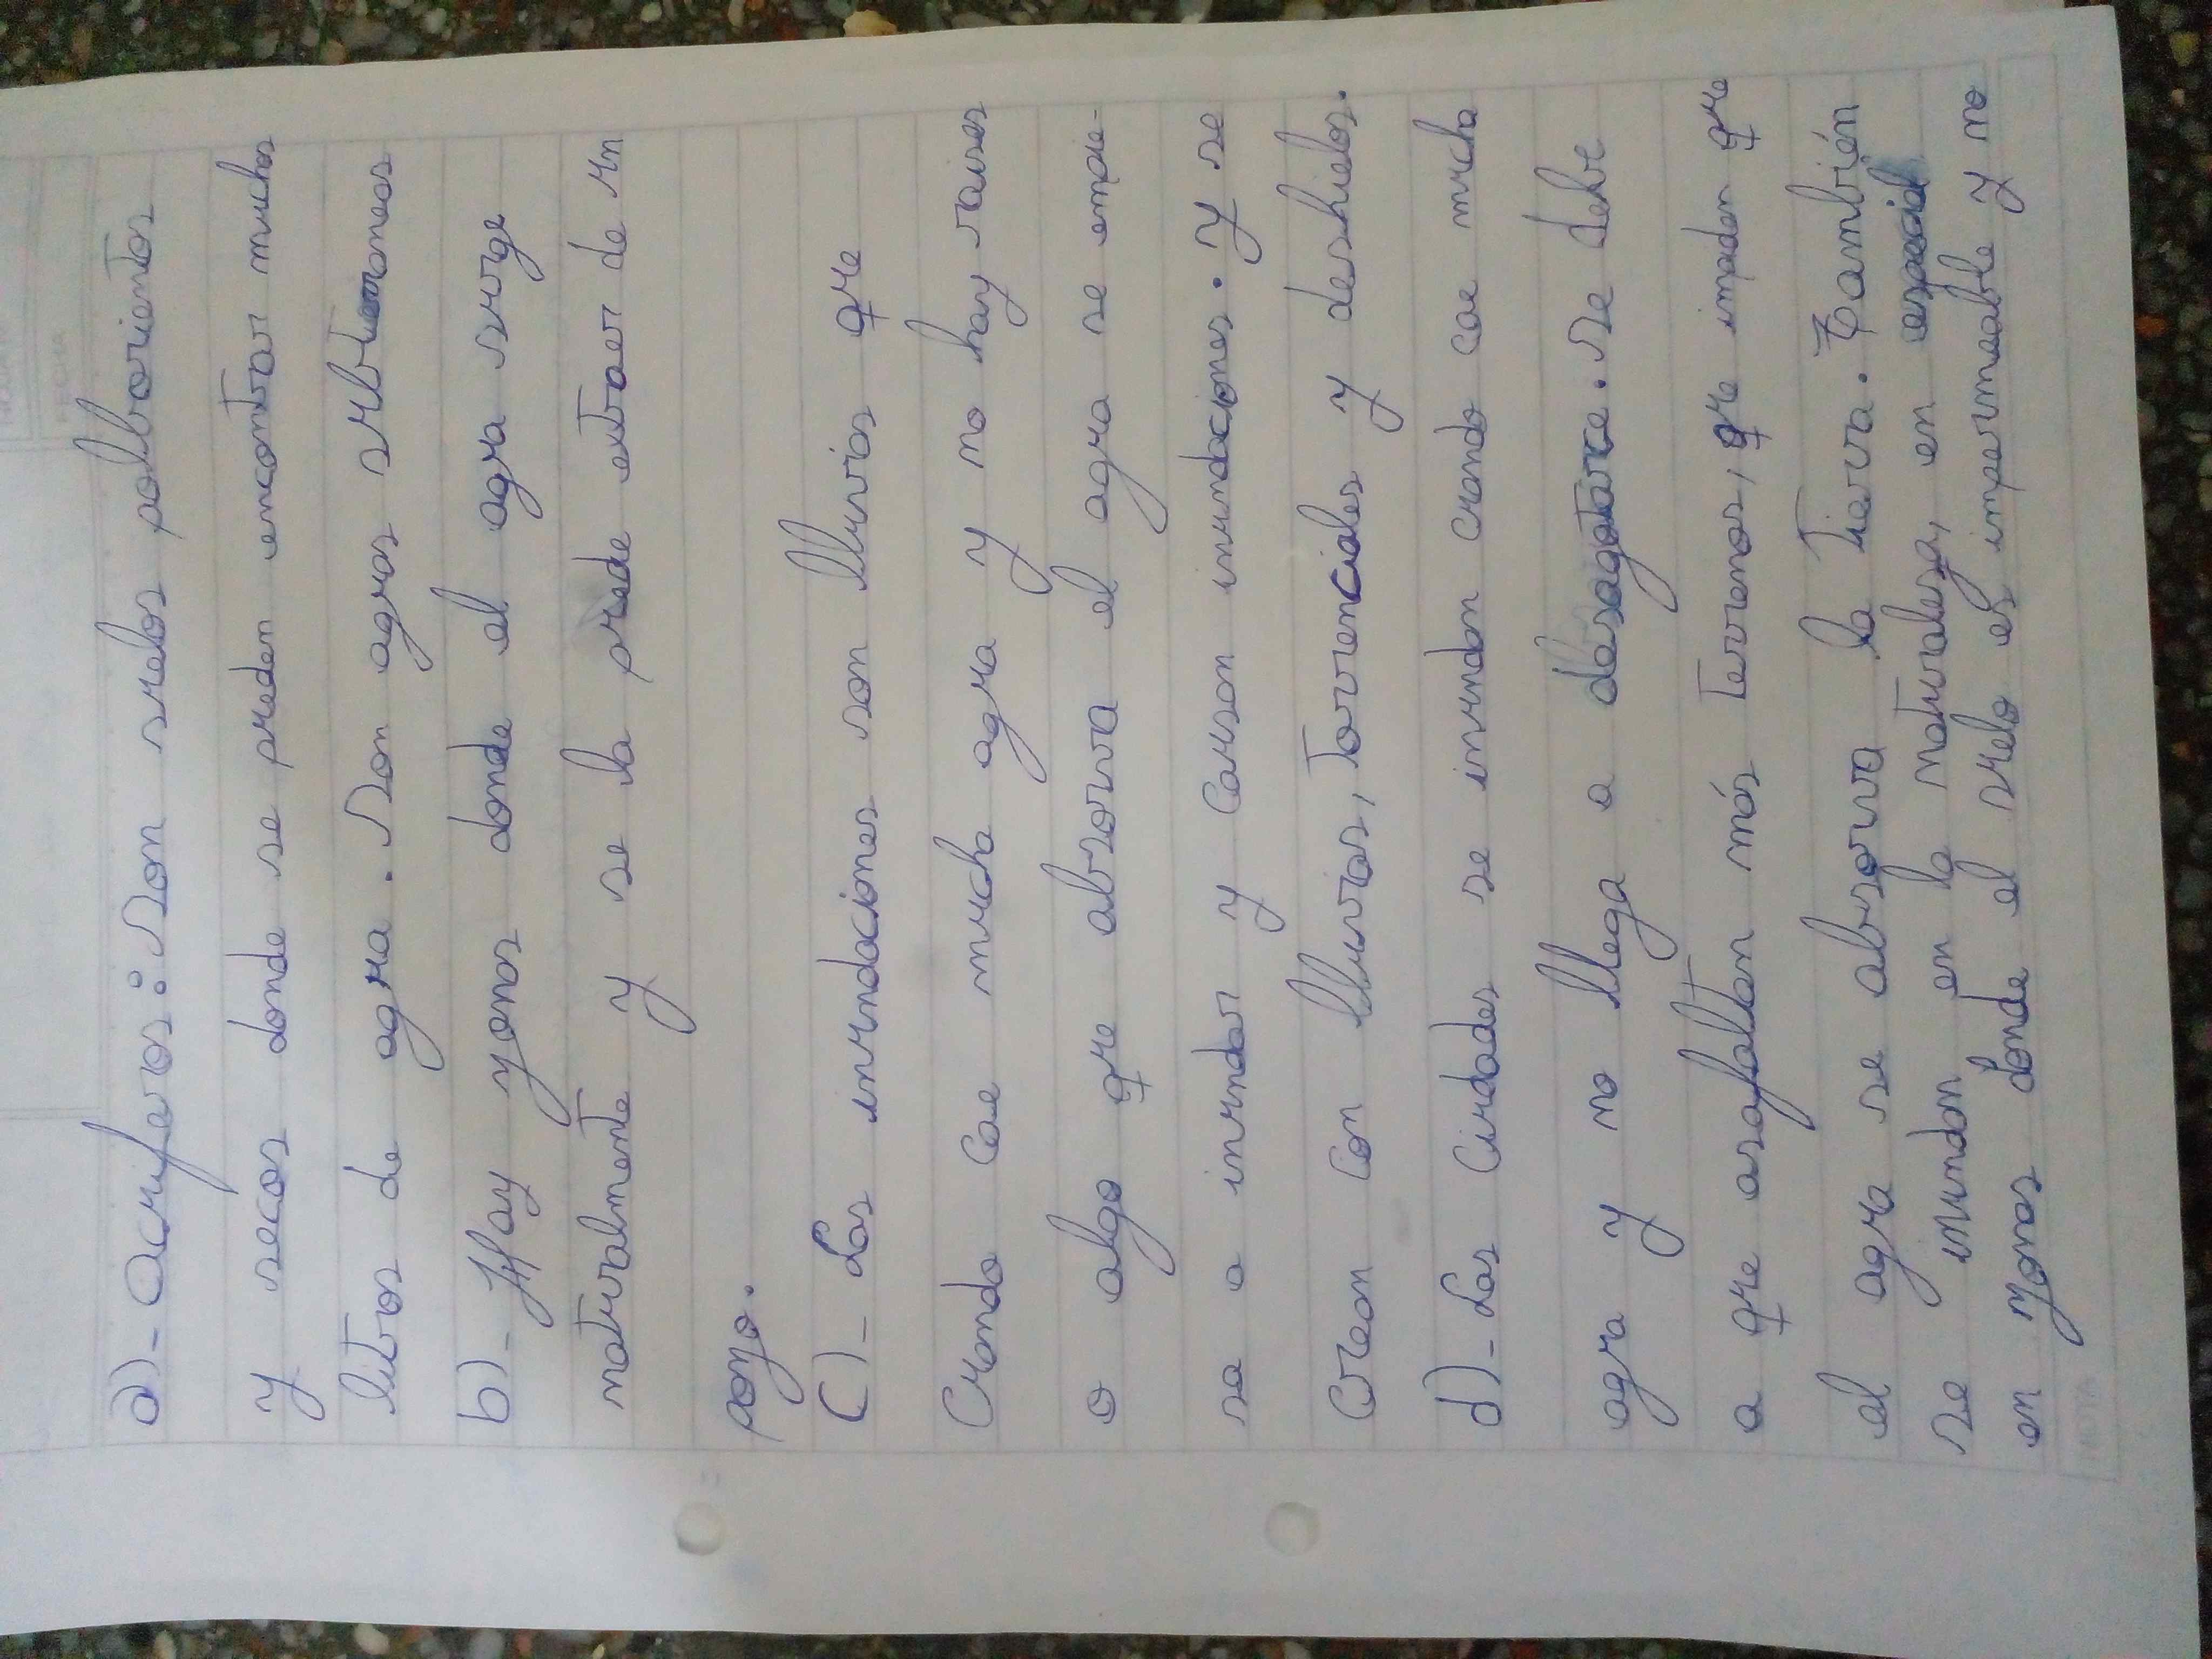 FECHA
a)- Acuíferos: Son suelos polborientos
y secos donde se pueden encontrar muchos
litros de agua. Son aguas subterraneas
b)- Hay zonas donde el agua surge
naturalmente y se la puede extraer de un
pozo.
c)- Las inundaciones son lluvias que
Cuando Cae mucha agua y no hay raises
o algo que abzorva el agua se empie-
sa a inundar y Causan inundaciones. y se
Crean Con lluvias, Torrenciales y deshielos.
d)- Las Ciudades se inundan cuando cae mucha
agua y no llega a desagotarce. Se debe
a que asafaltan más Terrenos, que impiden que
el agua se absorva la Tierra. También
se inundan en la naturalesa, en espacial
en zonas donde el suelo es impermeable y no
NOTA